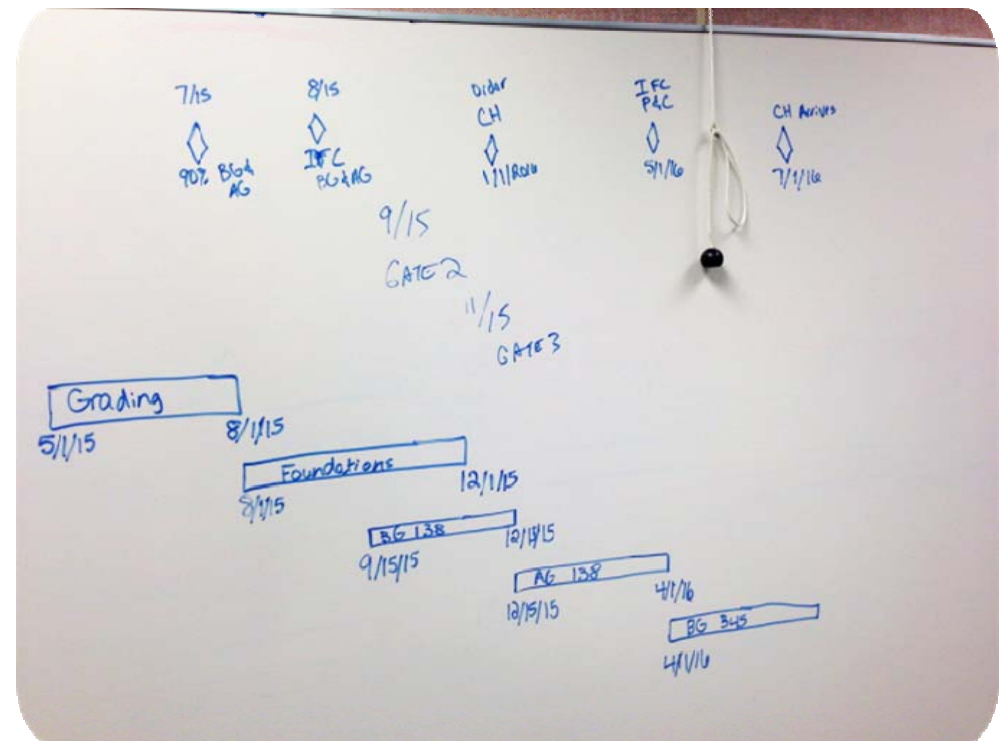 7/15
90% BG &
AG
8/15
IFC
BG & AG
Order
CH
IFC
P&C
5/1/16
CH Arrives
7/1/16
9/15
GATE 2
11/15
GATE 3
Grading
5/1/15
8/1/15
Foundations
8/1/15
12/1/15
BG 138
9/15/15
AG 138
12/15/15
4/1/16
BG 345
4/1/16